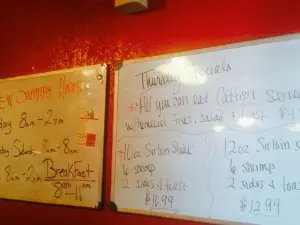 Summer Hours
8am - 2pm
8am - 8
8am - 2pm Breakfast
8am - 11am
Thursday Specials
* All you can eat Catfish Served
w/ homestyle fries, salad & toast $
10oz Sirloin Steak
6 shrimp
2 sides & toast
$10.99
12oz Sirloin
6 shrimp
2 sides & toast
$12.99